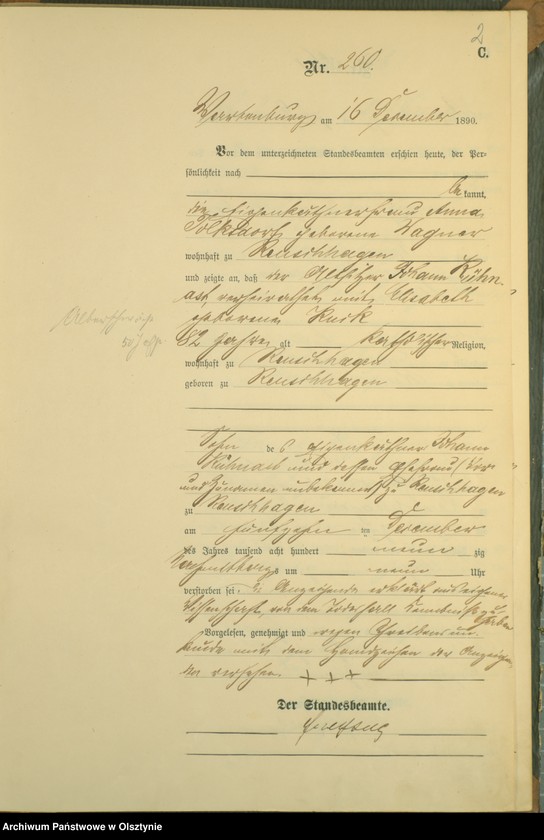 2
C.
Nr. 260.
Wartenburg am 16 Dezember 1890.
Vor dem unterzeichneten Standesbeamten erschien heute, der Per-
sönlichkeit nach
be kannt,
die Eigenkäthnerfrau Anna
geborene Wagner
wohnhaft zu Reuschhagen
und zeigte an, daß der Altsitzer Johann
verheirathet mit Elisabeth
geborenen
82 Jahre alt katholischer Religion,
wohnhaft zu Reuschhagen
geboren zu Reuschhagen
Sohn des Eigenkäthner Johann
und dessen Ehefrau
und Zunamen unbekannt zu Reuschhagen
zu Reuschhagen
am fünfzehn ten Dezember
des Jahres tausend acht hundert neun zig
Nachmittags um neun Uhr
verstorben sei, Anzeigende erklärt aus eigener
Wissenschaft von dem Todesfall Kenntniß zu
haben
Vorgelesen, genehmigt und wegen Schreibensun-
kunde mit dem Handzeichen der Anzeigen-
den versehen. + + +
Der Standesbeamte.
Archiwum Państwowe w Olsztynie